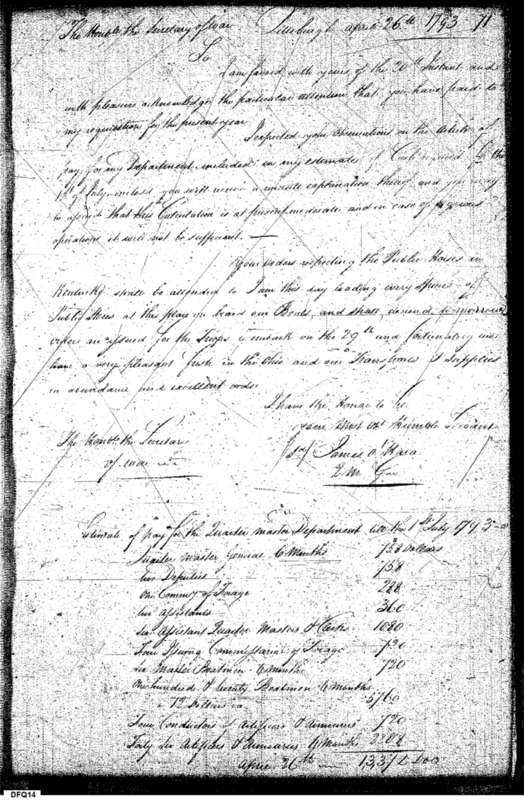 The Honble the Secretary of war Pittsburgh april 26th 1793 71
Sir
I am favored with yours of the 20th Instant and
with pleasure acknowledge the particular attention that you have paid to
my requisition for the present year
I expected your observations on the article of
pay for my Department, included in my estimates of Cash required the
1st of July unless you will receive a minute explanation thereof and you may
be assured that this Calculation is at present moderate and in case of
operations it will not be sufficient. —
Your orders respecting the Public Horses in
Kentucky shall be attended to I am this day loading every species of
Public Stores at this place on board our Boats, and shall descend tomorrow
orders are issued for the Troops to embark on the 29th and fortunately we
have a very pleasant fresh in the Ohio and our Transports & Supplies
in abundance and excellent order
I have the Honor to be
your Most Obt Humble Servant
The Honble the Secretary
of war
sd/ James O'Hara
Q M G
Estimate of pay for the Quarter Master Department till the 1st July 1793
Quarter Master General 6 Months 758 Dollars
two Deputies 758
One Commy of Forage 288
two Assistants 360
Six Assistant Quarter Masters & Clerks 1080
Four Issuing Commissaries of Forage 720
Six Master Boatmen 6 months 720
One hundred & twenty Boatmen 6 Months
12 Dollars ea 5760
Four Conductors of Artificers & Armourers 720
Forty Six Artificers & Armourers 6 Months
april 26th 13372.100
DFQ14